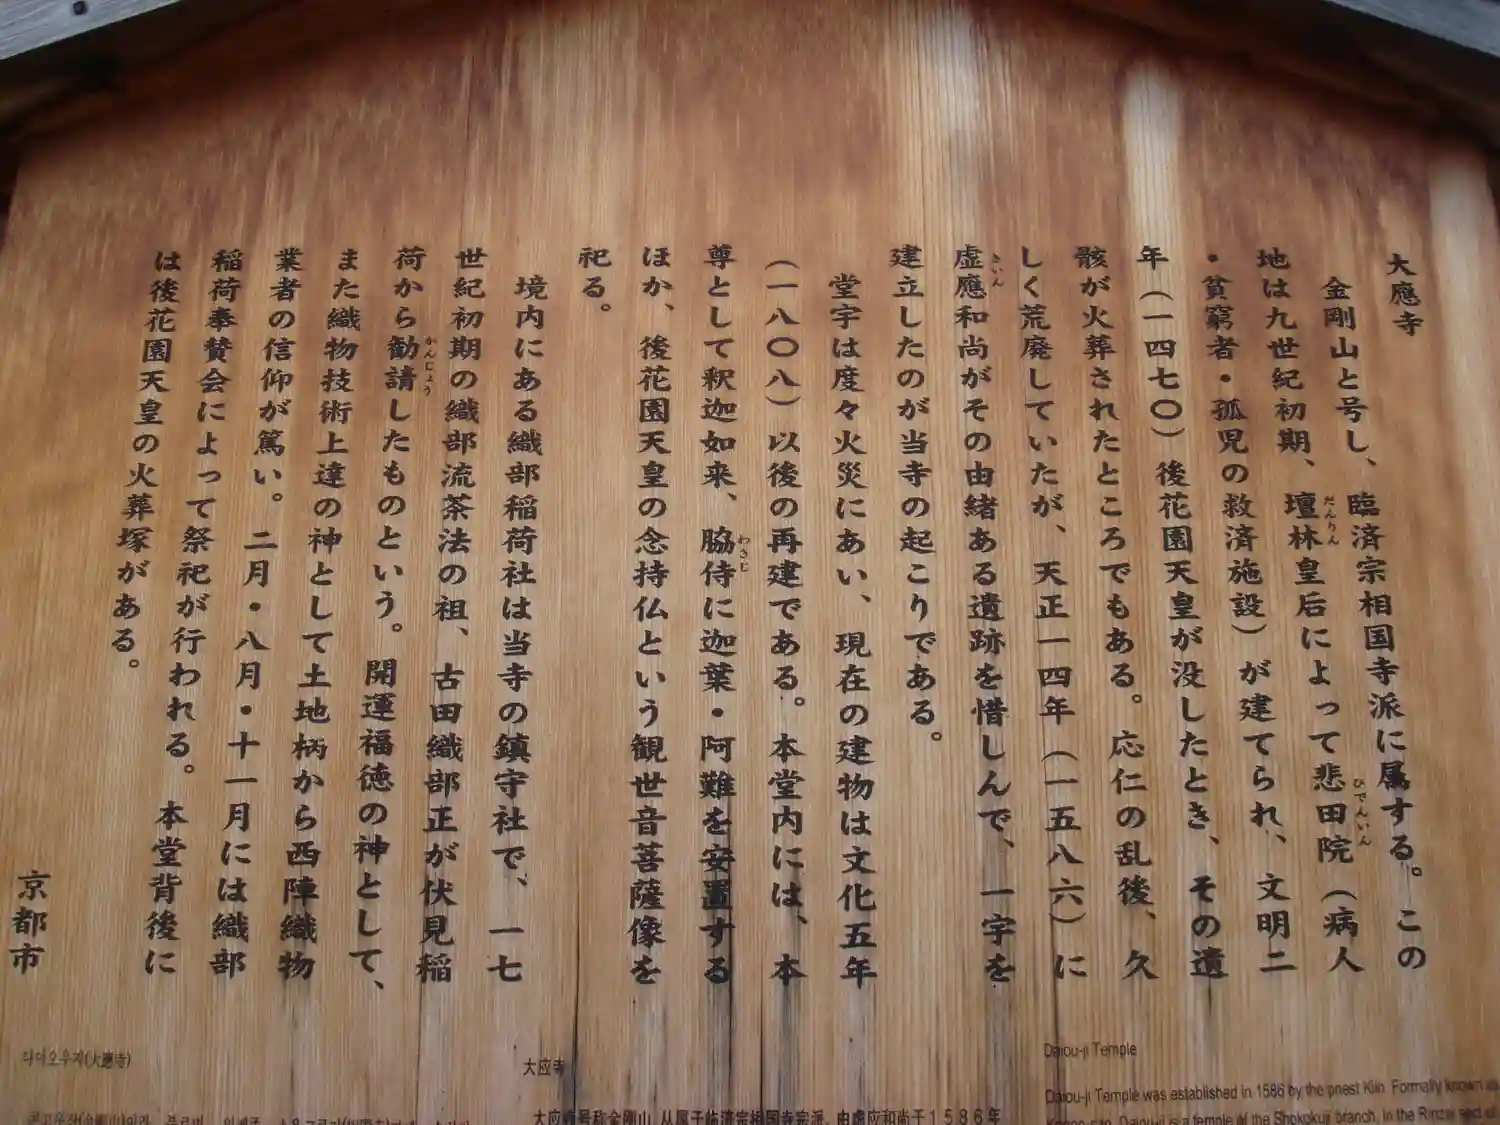 大應寺
金剛山と号し、臨済宗相国寺派に属する。この
地は九世紀初期、壇林皇后によって悲田院（病人
・貧窮者・孤児の救済施設）が建てられ、文明二
年（一四七〇）後花園天皇が没したとき、その遺
骸が火葬されたところでもある。応仁の乱後、久
しく荒廃していたが、天正一四年（一五八六）に
虚應和尚がその由緒ある遺跡を惜しんで、一宇を
建立したのが当寺の起こりである。
堂宇は度々火災にあい、現在の建物は文化五年
（一八〇八）以後の再建である。本堂内には、本
尊として釈迦如来、脇侍に迦葉・阿難を安置する
ほか、後花園天皇の念持仏という観世音菩薩像を
祀る。
境内にある織部稲荷社は当寺の鎮守社で、一七
世紀初期の織部流茶法の祖、古田織部正が伏見稲
荷から勧請したものという。開運福徳の神として、
また織物技術上達の神として土地柄から西陣織物
業者の信仰が篤い。二月・八月・十一月には織部
稲荷奉賛会によって祭祀が行われる。本堂背後に
は後花園天皇の火葬塚がある。
京都市
だんりん
ひでんいん
きいん
わきじ
かんじょう
Daiou-ji Temple
Daiou-ji Temple was established in 1586 by the priest Kiin. Formally known as
Daiou-ji is a temple of the Shokokuji branch, in the Rinzai sect of
大应寺
大应寺号称金刚山，从属于临济宗相国寺宗派，由虚应和尚于１５８６年
다이오우지(大應寺)